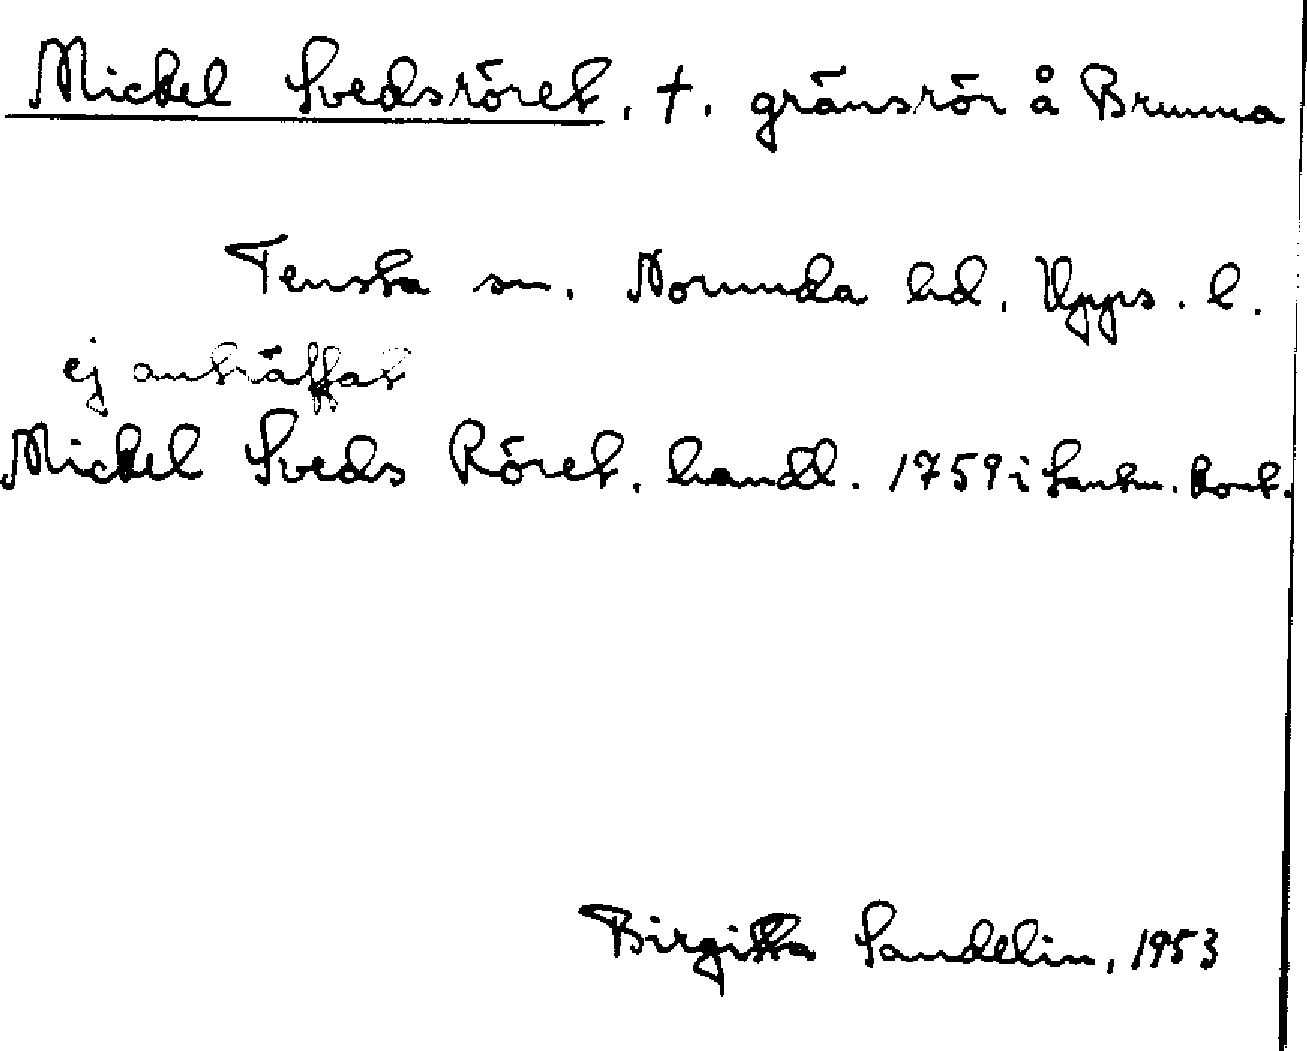 Mickel Svedsröret, †. gränsrör å Brunna
Tensta sn. Norunda hd. Upps. l.
ej anträffat
Mickel Sveds Röret. handl. 1759 i Lantm. Kont.
Birgitta Sandelin, 1953